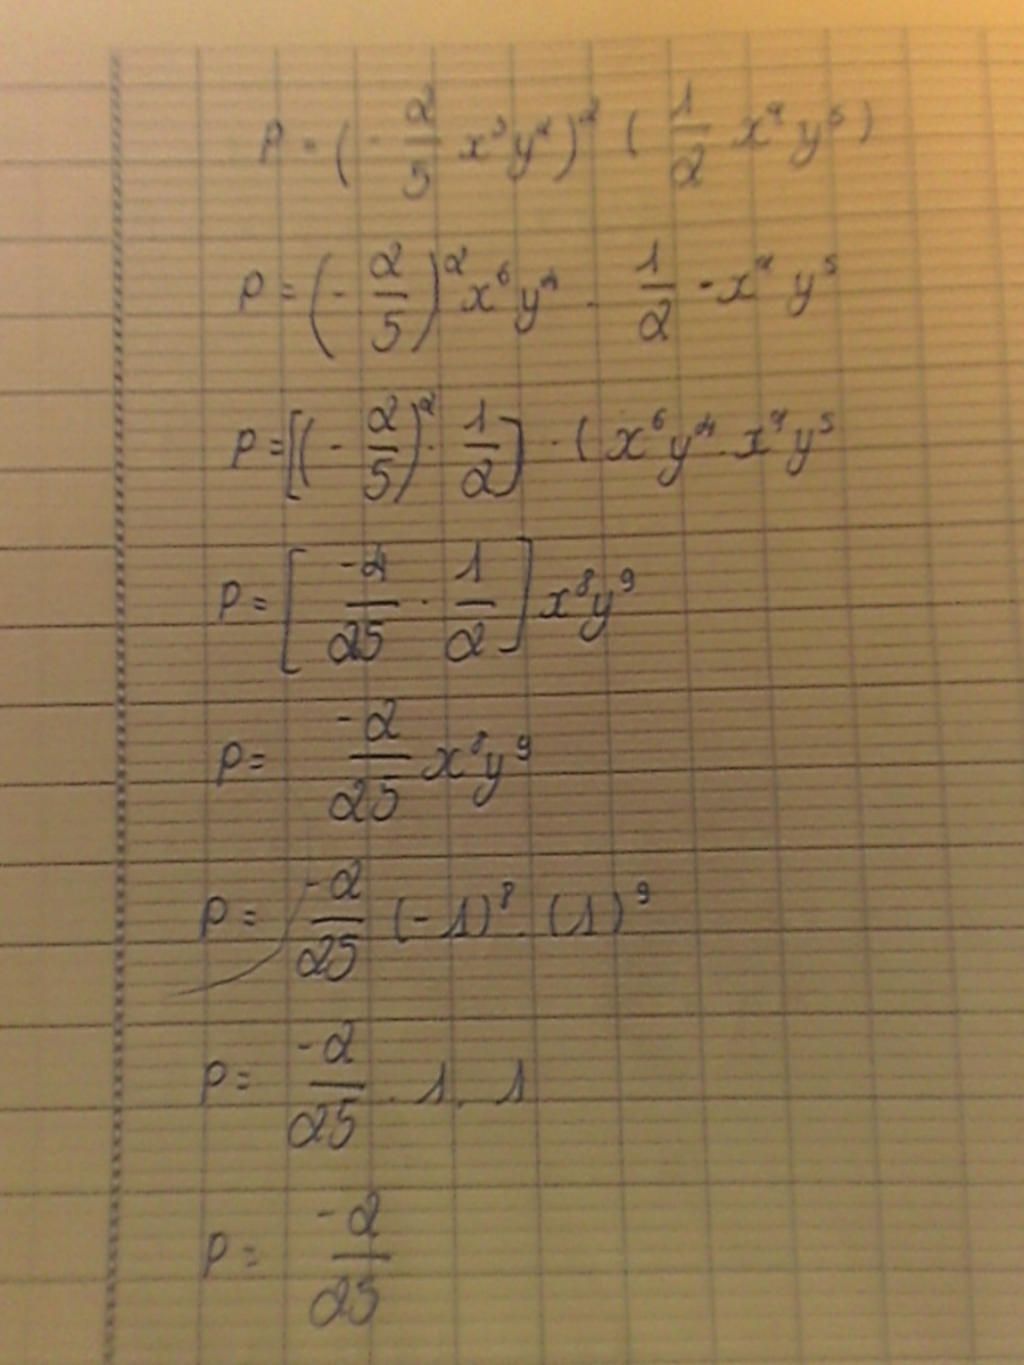 P = (-2/5 x³y²)² (1/2 x⁴y⁵)
P = (-2/5)² x⁶y⁴ . 1/2 . x⁴ y⁵
P = [(-2/5)² . 1/2] . (x⁶y⁴ . x⁴y⁵
P = [-4/25 . 1/2] x⁸y⁹
P = -2/25 x⁸y⁹
P = -2/25 (-1)⁸ . (1)⁹
P = -2/25 . 1 . 1
P = -2/25